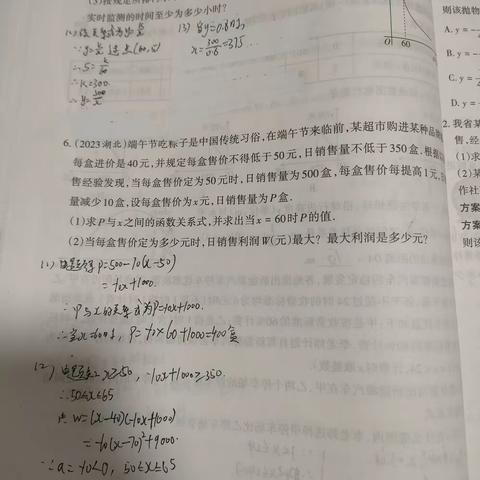 实时监测的时间至少为多少小时?
∴k=300
6.(2023湖北)端午节吃粽子是中国传统习俗,在端午节来临前,某超市购进某种品
每盒进价是40元,并规定每盒售价不得低于50元,日销售量不低于350盒.根据
售经验发现,当每盒售价定为50元时,日销售量为500盒,每盒售价每提高1元,
量减少10盒,设每盒售价为x元,日销售量为P盒.
(1)求P与x之间的函数关系式,并求出当x=60时P的值.
(2)当每盒售价定为多少元时,日销售利润W(元)最大?最大利润是多少元?
(1) P=500-10(x-50)
=-10x+1000.
∴P与x的关系式为P=-10x+1000.
∴当x=60时, P=-10×60+1000=400盒
(2) x≥50, -10x+1000≥350.
∴50≤x≤65
W=(x-40)(-10x+1000)
=-10(x-70)²+9000.
∵a=-10<0, 50≤x≤65
O 60
则该抛物
A. y=-
B. y=-
C. y=
D. y=-
2. 我省某
售,经
(1)求
(2)某
作社
方案
方案
则该